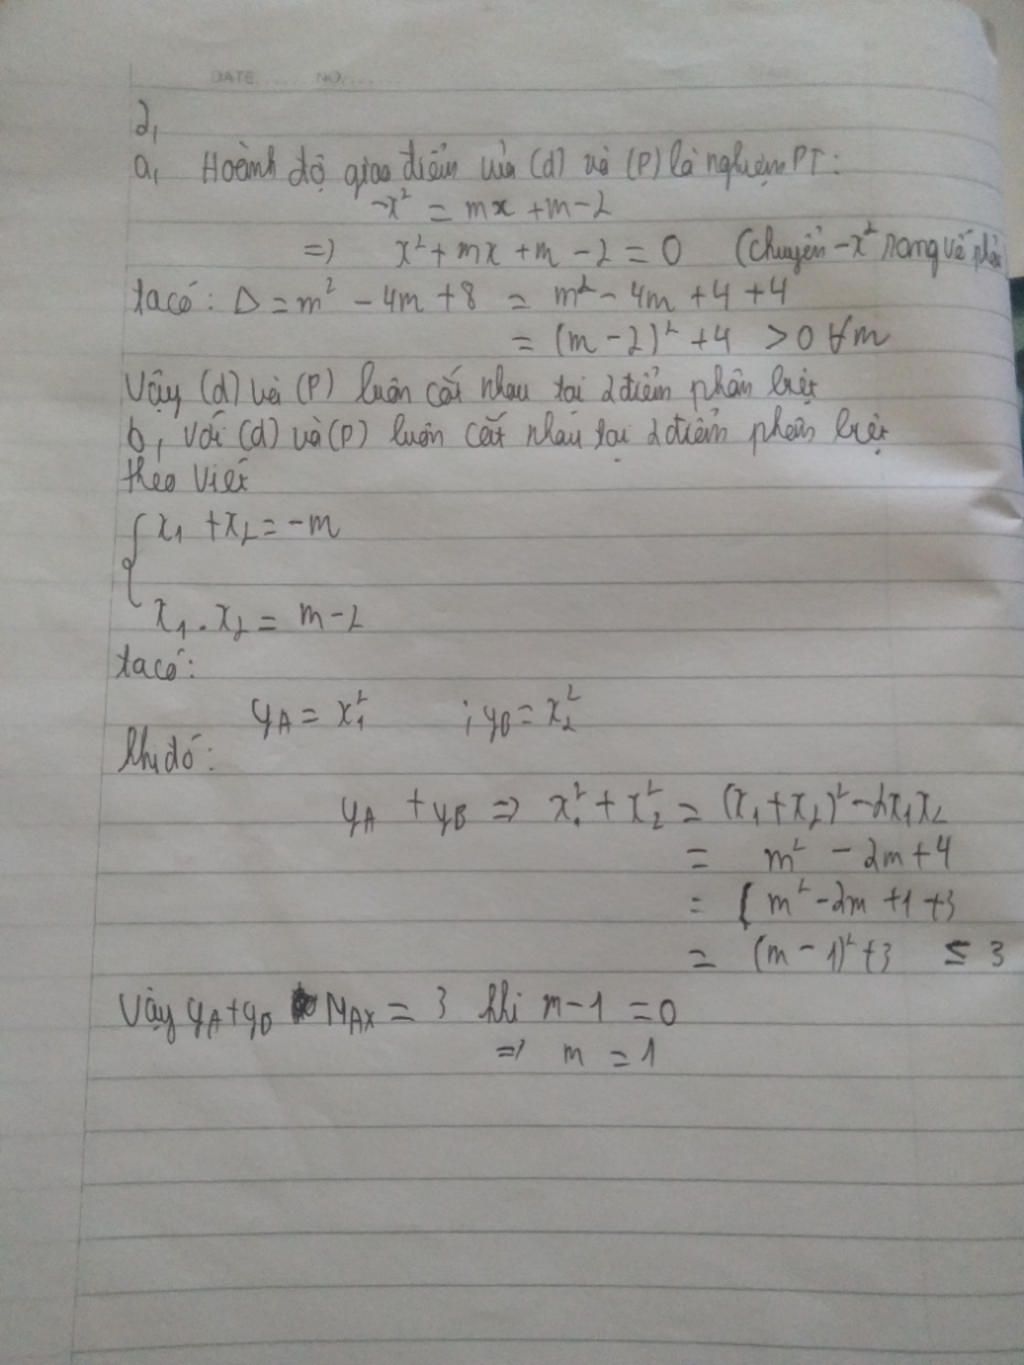 DATE....... NO........
2,
a, Hoành độ giao điểm của (d) và (P) là nghiệm PT:
-x² = mx + m - 2
=> x² + mx + m - 2 = 0 (chuyển -x² sang vế phải
ta có: Δ = m² - 4m + 8 = m² - 4m + 4 + 4
= (m - 2)² + 4 > 0 ∀m
Vậy (d) và (P) luôn cắt nhau tại 2 điểm phân biệt
b, Với (d) và (P) luôn cắt nhau tại 2 điểm phân biệt
theo Viét
{ x₁ + x₂ = -m
x₁ . x₂ = m - 2
ta có:
yA = x₁² ; yB = x₂²
khi đó:
yA + yB => x₁² + x₂² = (x₁ + x₂)² - 2x₁x₂
= m² - 2m + 4
= ( m² - 2m + 1 + 3
= (m - 1)² + 3 ≤ 3
Vậy yA + yB MAX = 3 khi m - 1 = 0
=> m = 1